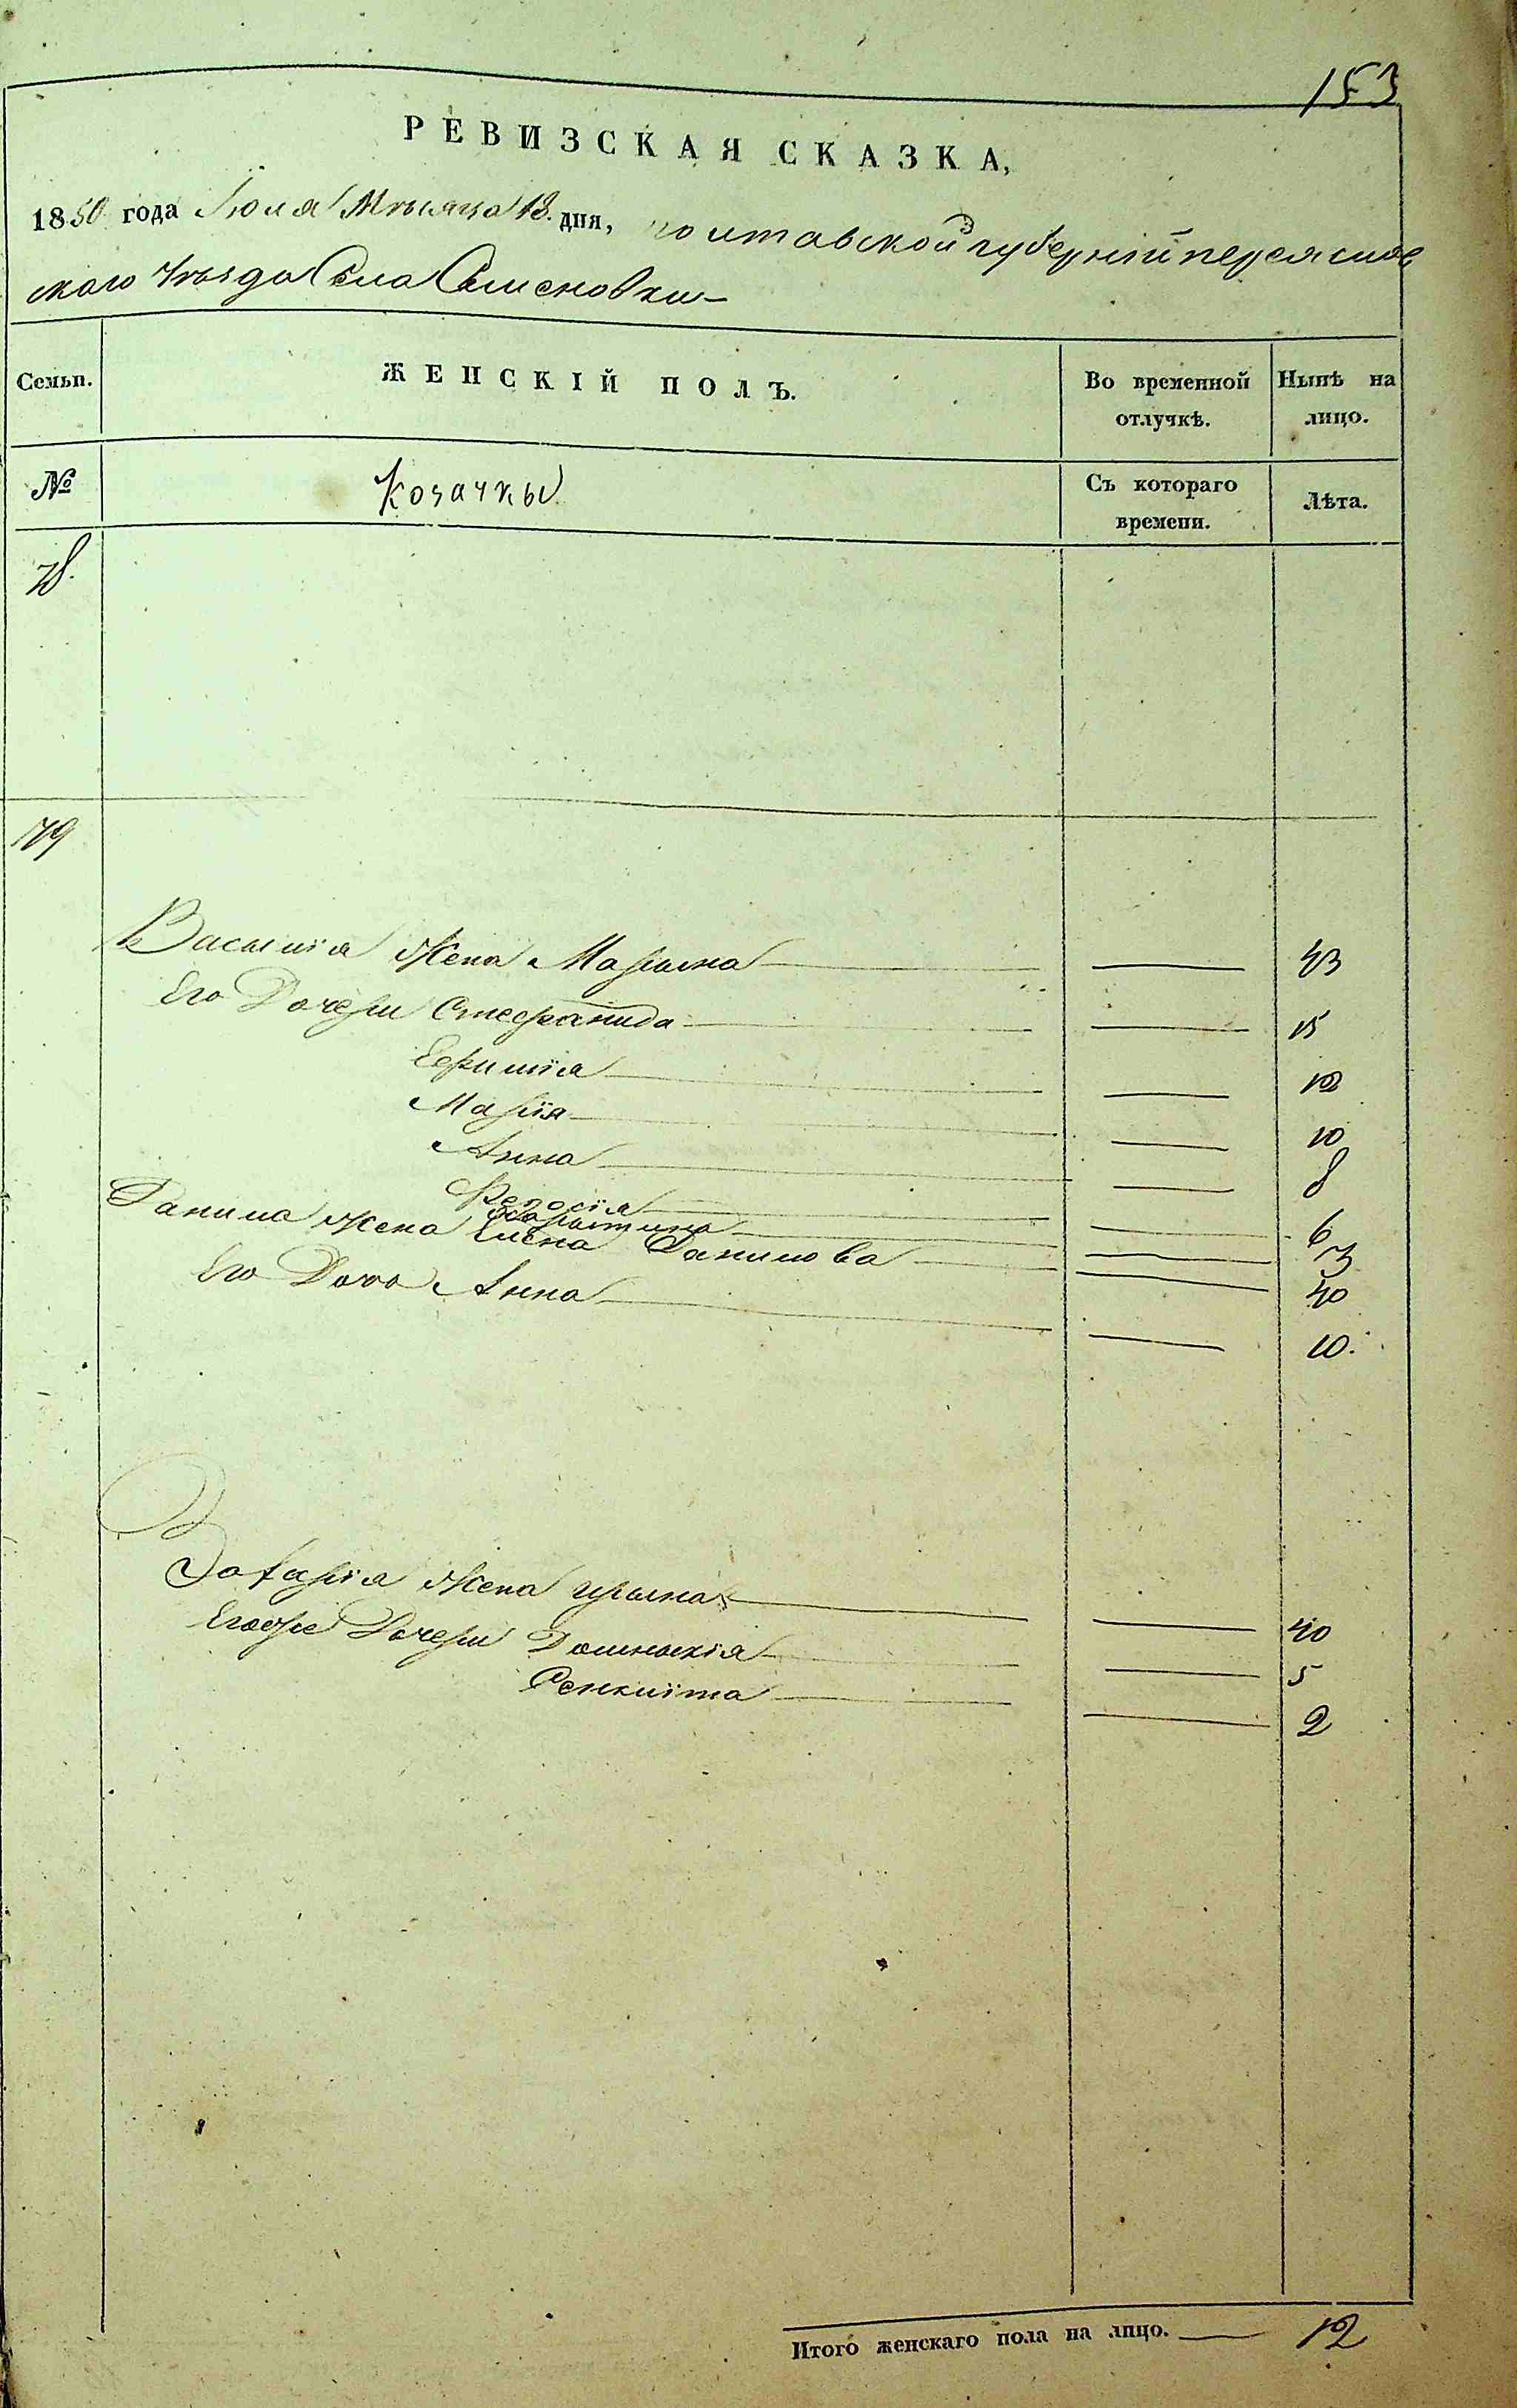 153
РЕВИЗСКАЯ СКАЗКА,
1850 года Іюля Мѣсяца 18. дня, полтавской губерніи переяслов
скаго Уѣзда Села Семеновки
Семьи. ЖЕНСКІЙ ПОЛЪ. Во временной отлучкѣ. Нынѣ на лицо.
№ Козачкы Съ котораго времени. Лѣта.
78.
79
Василія Жена Марына 43
Его Дочери Стефанида 15
Ефимія 12
Марія 10
Анна 8
Феодосія 6
3
Данила Жена Елена Данилова 40
Его Дочь Анна 10.
Захарія Жена Ирына 40
Егоже Дочери Домныкія 5
2
Итого женскаго пола на лицо. 12